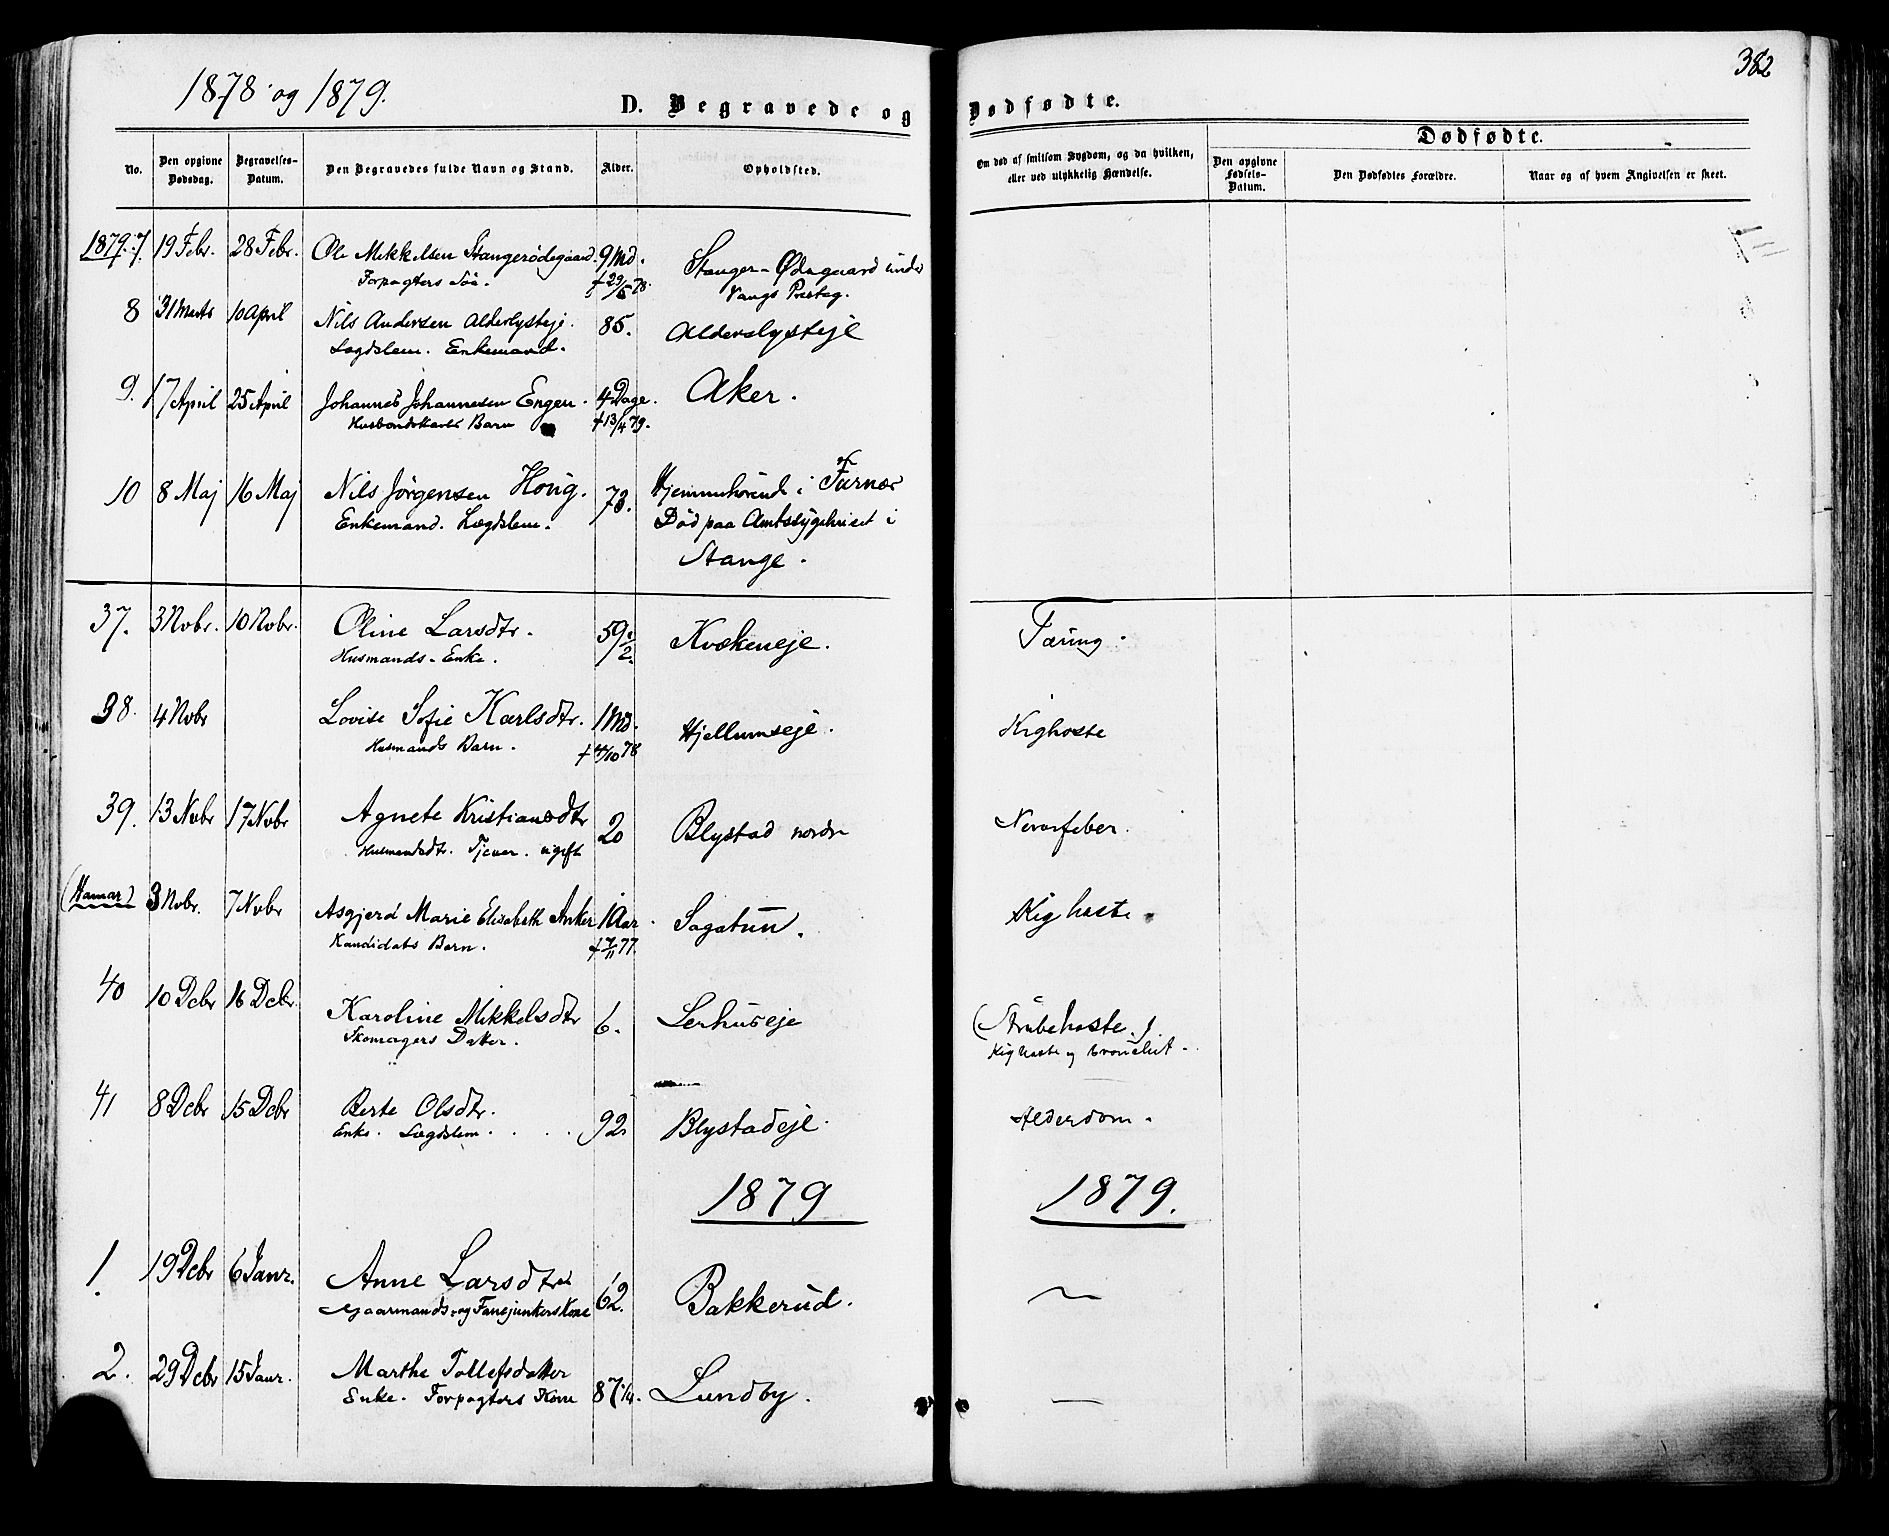 1878 og 1879.
D. Begravede og Dødfødte.
382
Dødfødte.
No.
Den opgivne Dødsdag.
Begravelses-Datum.
Den Begravedes fulde Navn og Stand.
Alder.
Opholdsted.
Om død af smitsom Sygdom, og da hvilken, eller ved ulykkelig Hændelse.
Den opgivne Fødsels-Datum.
Den Dødfødtes Forældre.
Naar og af hvem Angivelsen er skeet.
1879. 7. 19 Febr. 28 Febr. Ole Mikkelsen Stangerødegaard. 9 Md. Stanger-Ødegaard under
Forpagters Søn. f 29/5 78. Vangs Præsteg.
8 31 Marts 10 April Nils Andersen Alderlysteje. 85. Alderslysteje
Lægdslem. Enkemand.
9. 17 April 25 April Johannes Johannesen Engen. 4 Dage. Aker.
Husbondskarls Barn f 13/4 79.
10 8 Maj 16 Maj Nils Jörgensen Honig. 73. Hjemmehørende i Furnes
Enkemand. Lægdslem. Død paa Amtssygehuset i
Stange.
37. 3 Nvbr. 10 Nvbr. Oline Larsdtr. 59 1/2. Kvækeneje. Tæring.
Husmands-Enke.
38. 4 Nvbr Lovise Sofie Karlsdtr. 1 Md. Hjellumseje. Kighoste
Husmands Barn. f 4/10 78
39. 13 Nvbr 17 Nvbr Agnete Kristiansdtr 20 Blystad nordre Nervefeber.
Husmandsdtr. Tjener. ugift
(Hamar) 3 Nvbr. 7 Nvbr Asgjerd Marie Elisabeth Anker 1 Aar. Sagatun. Kighoste
Kandidats Barn. f 7/11 77.
40 10 Dcbr 16 Dcbr. Karoline Mikkelsdtr 6. Lerhuseje (Strubehoste)
Skomagers Datter. Kighoste og bronchit.
41 8 Dcbr 15 Dcbr Berte Olsdtr. 92. Blystadeje. Alderdom.
Enke. Lægdslem.
1879 1879.
1. 19 Dcbr 6 Janr. Anne Larsdtr 62. Bakkerud.
Gaarmands- og Fanejunkers Kone
2. 29 Dcbr 15 Janr. Marthe Tollefsdatter 87 1/4. Lundby.
Enke. Forpagters Kone